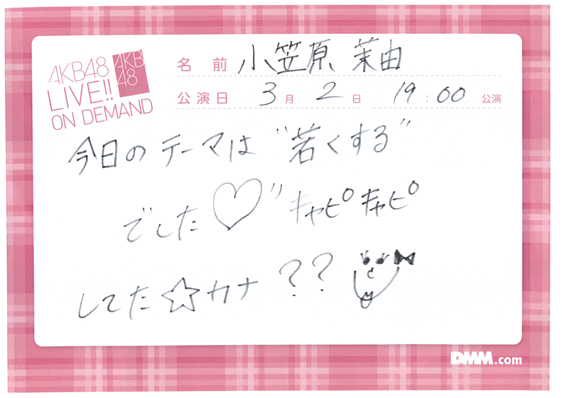 AKB48
LIVE!!
ON DEMAND
AKB
48
名前 小笠原 茉由
公演日 3月2日 19:00 公演
今日のテーマは"若くする"
でした♡"キャピキャピ
してた☆カナ??
DMM.com